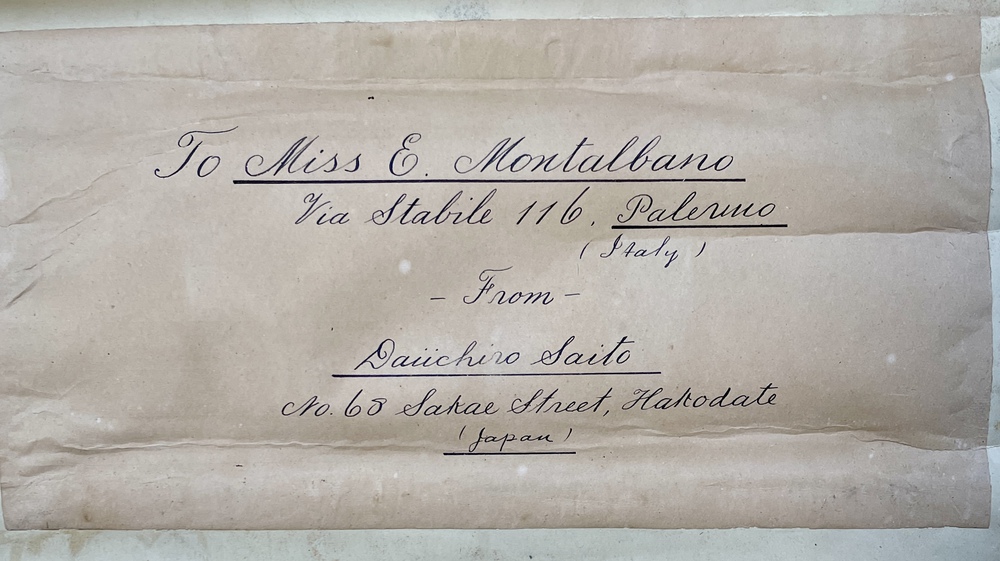 To Miss E. Montalbano
Via Stabile 116, Palermo
(Italy)
- From -
Daiichiro Saito
No. 68 Sakae Street, Hakodate
(Japan)